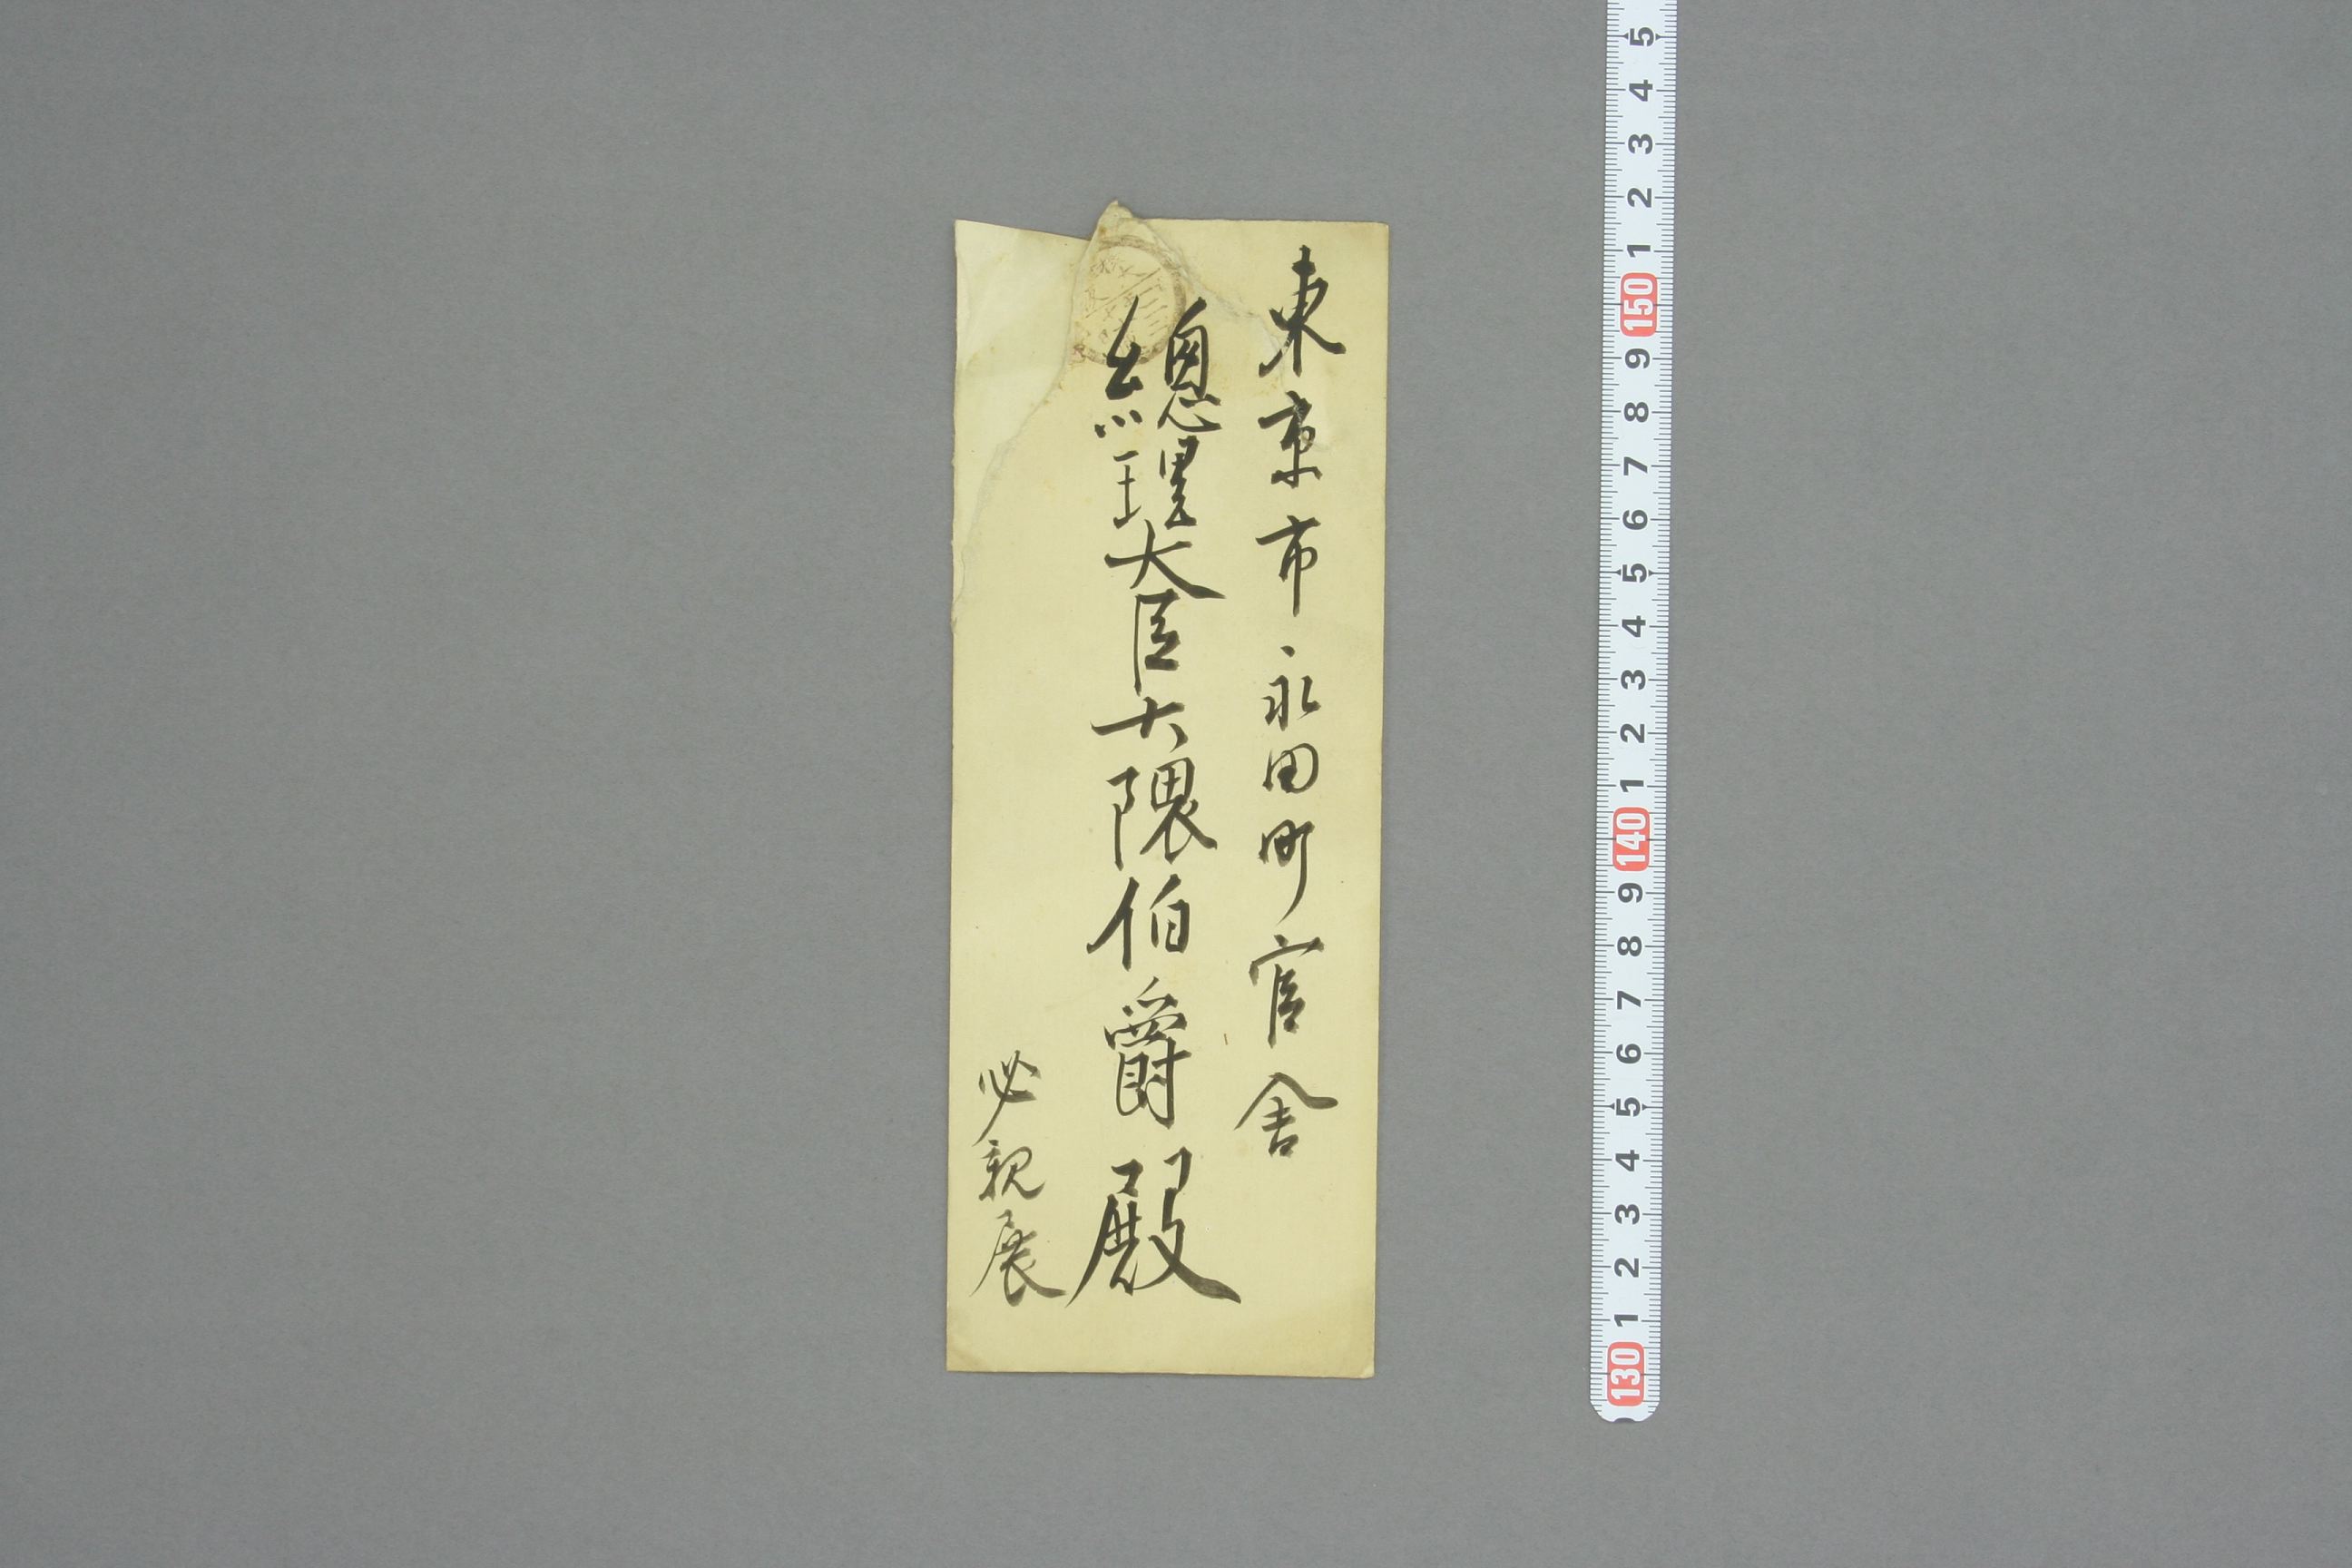 東京市永田町官舎
總理大臣大隈伯爵殿
必親展
5
4
3
2
1
150
9
8
7
6
5
4
3
2
1
140
9
8
7
6
5
4
3
2
1
130